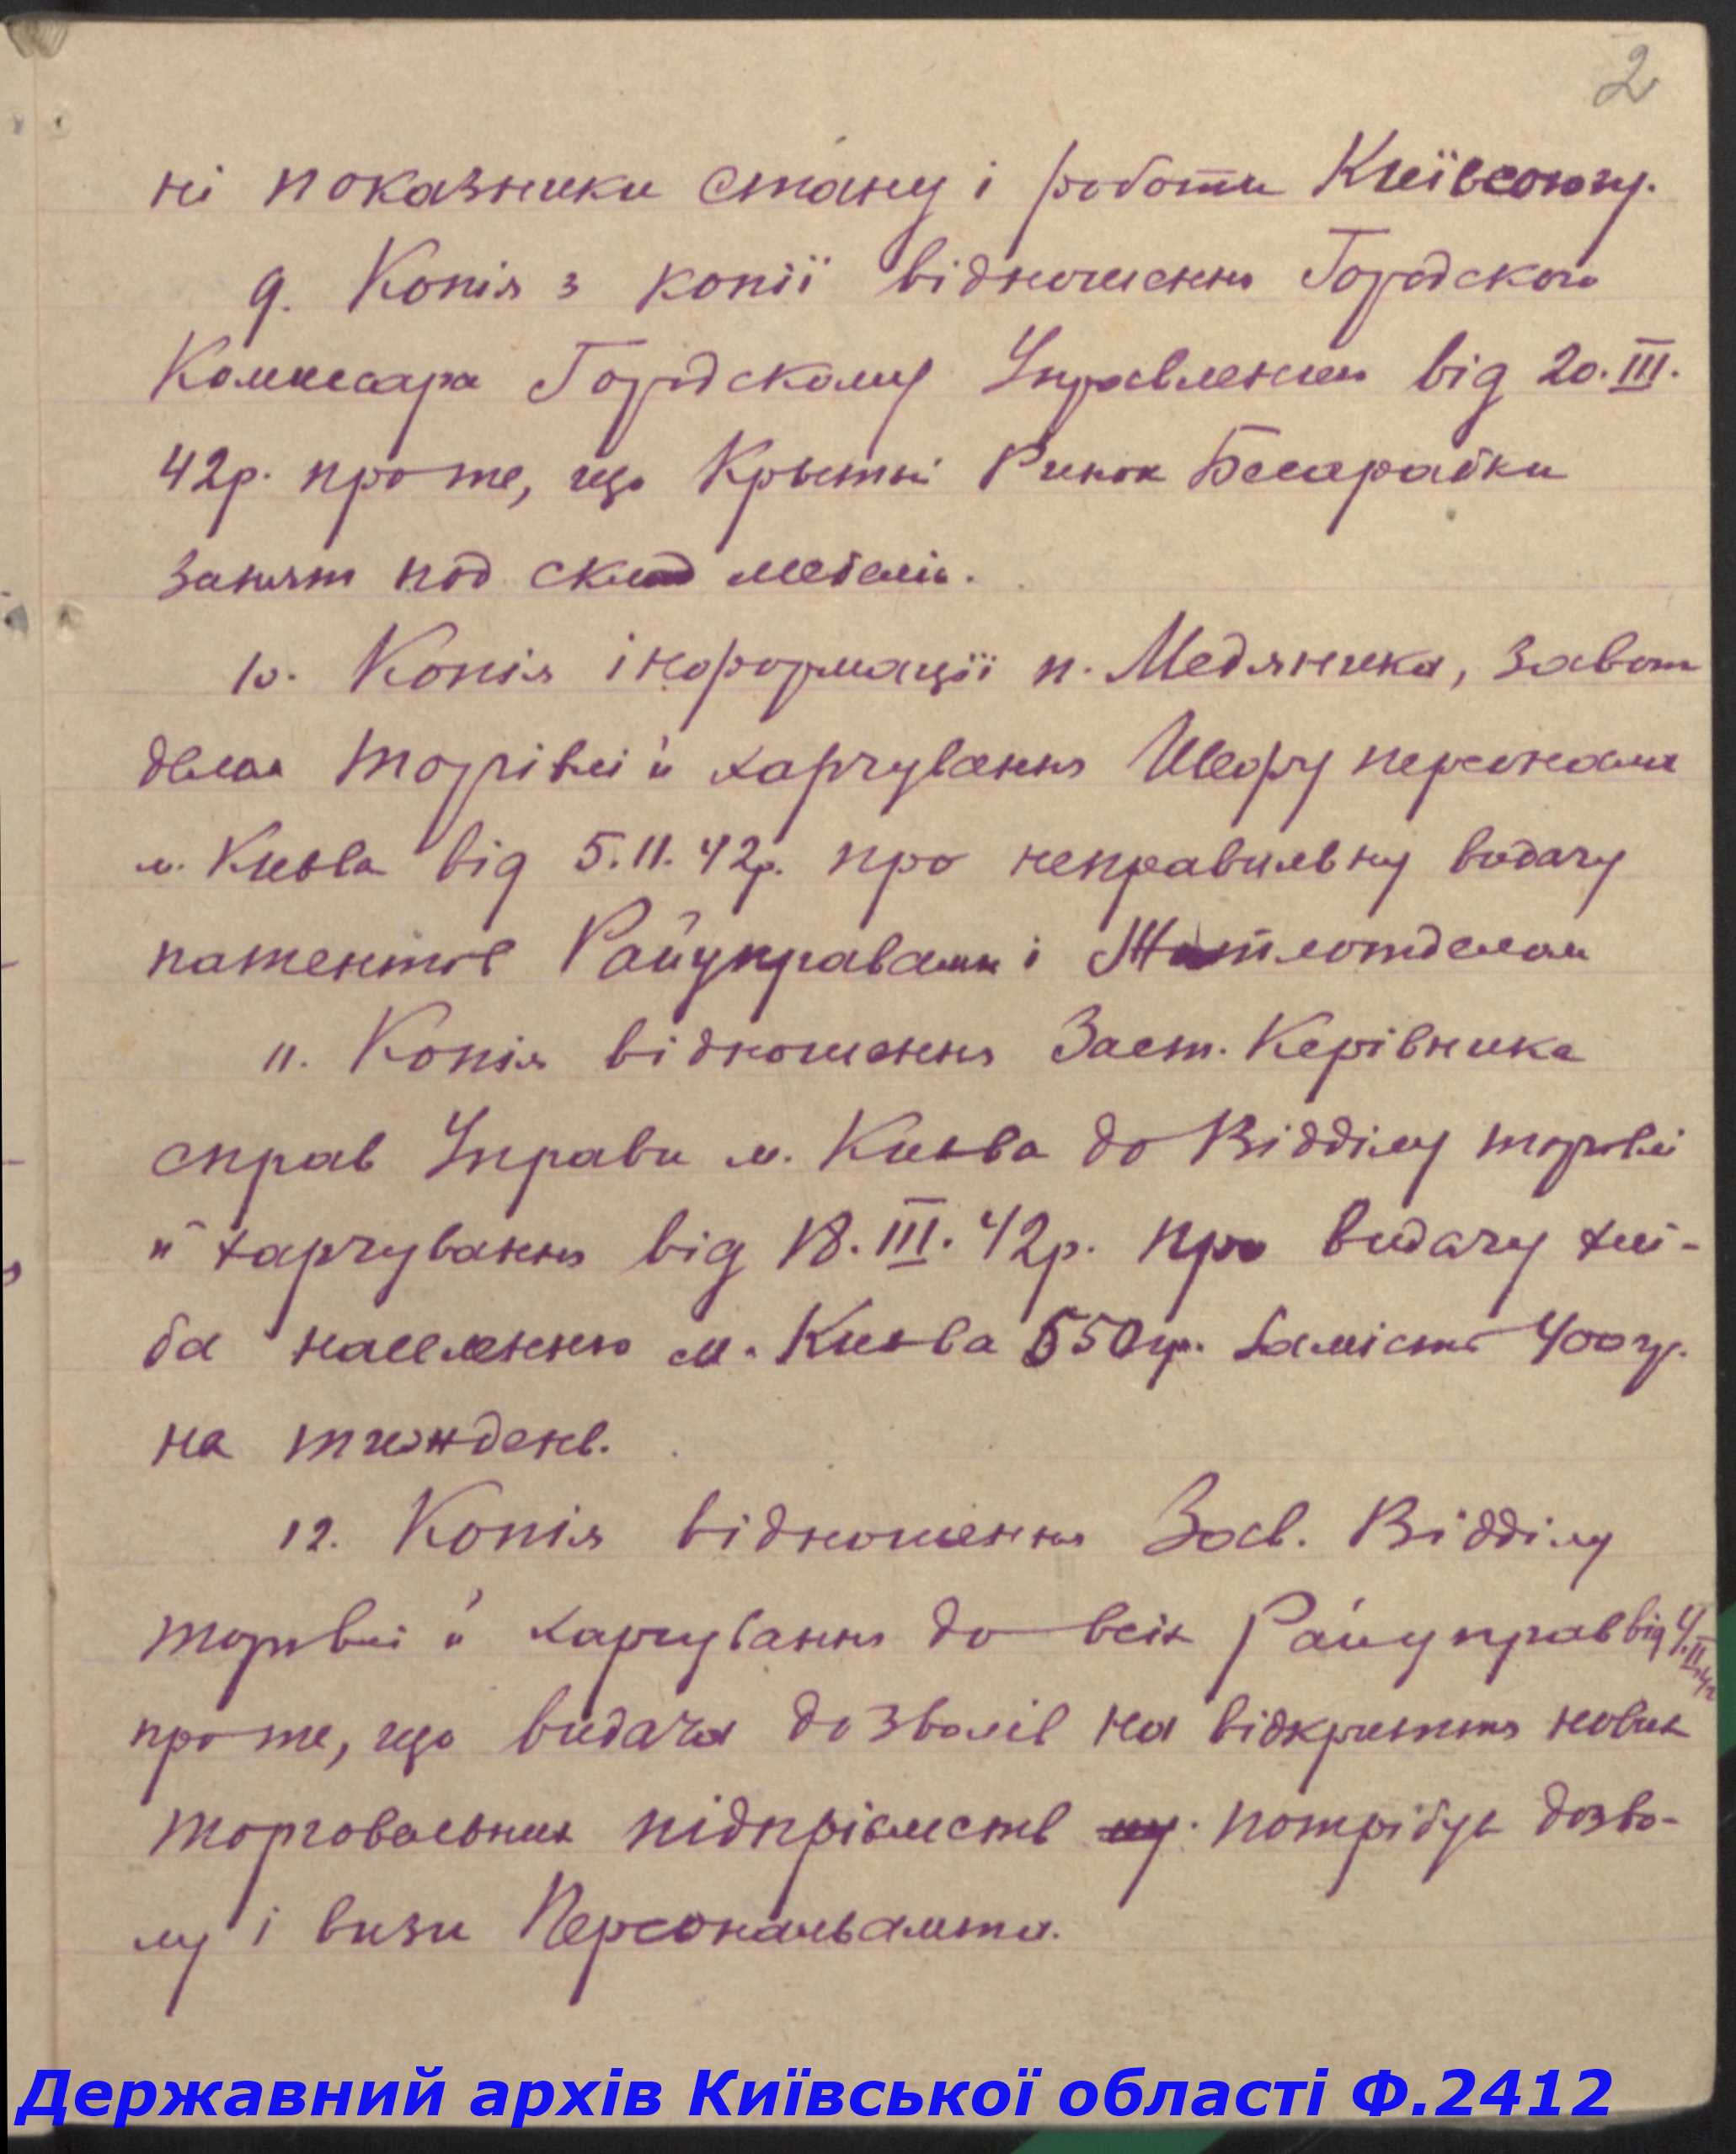 2
ні показники стану і роботи Київсоюзу.
9. Копія з копії відношення Городского
Комисара Городскому Управлению від 20.III.
42р. про те, що Критий Ринок Бесарабки
занят под склад мебели.
10. Копія інформації п. Медяника, завот
делом торгівлі й харчування Шефу персонала
м. Києва від 5.11.42р. про неправильну видачу
патентов Райуправами і Житлотделом
11. Копія відношення Заст. Керівника
справ Управи м. Києва до Відділу торгівлі
й харчування від 18.III.42р. про видачу хлі-
ба населенню м. Києва 550гр. замість 400гр.
на тиждень.
12. Копія відношення Зав. Відділу
торгівлі й харчування до всіх Райуправ від 4.II.42
про те, що видача дозволів на відкриття нових
торговельних підпріємств потрібує дозво-
лу і визи Персональамта.
Державний архів Київської області Ф.2412